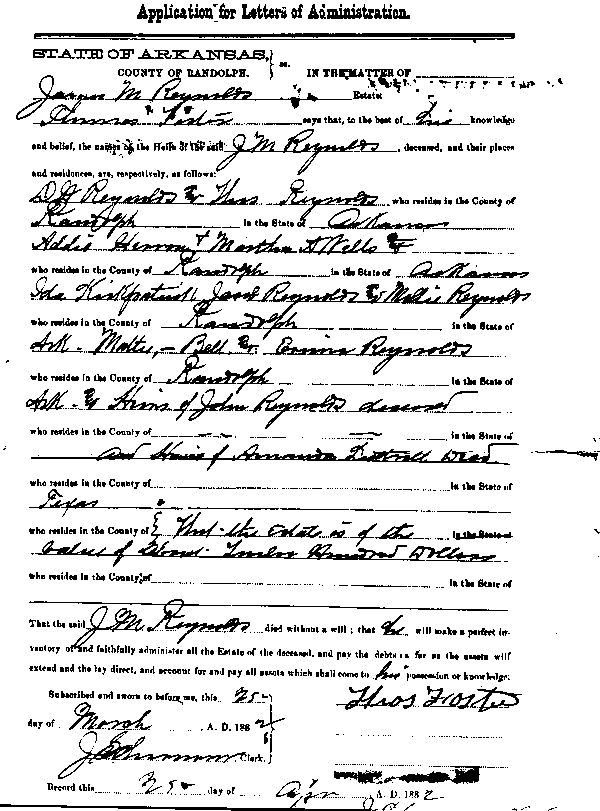 Application for Letters of Administration.
STATE OF ARKANSAS,
COUNTY OF RANDOLPH. } ss. IN THE MATTER OF
James M Reynolds Estate:
Thomas Foster says that, to the best of his knowledge
and belief, the names of the Heirs of the said J M Reynolds, deceased, and their places
and residences, are, respectively, as follows:
D W Reynolds & Thos Reynolds who resides in the County of
Randolph in the State of Arkansas
Addie Herron & Martha A Wells &
who resides in the County of Randolph in the State of Arkansas
Ida Kirkpatrick Jacob Reynolds & Mollie Reynolds
who resides in the County of Randolph in the State of
Ark - Mattie, - Bell & Emma Reynolds
who resides in the County of Randolph in the State of
Ark - & Heirs of John Reynolds deceased
who resides in the County of in the State of
and Heirs of Amanda Dead
who resides in the County of in the State of
Texas
who resides in the County of { That the Estate is of the in the State of
value of about Twelve Hundred Dollars
who resides in the County of in the State of
That the said J M Reynolds died without a will; that he will make a perfect in-
ventory of and faithfully administer all the Estate of the deceased, and pay the debts as far as the assets will
extend and the lay direct, and account for and pay all assets which shall come to his possession or knowledge.
Subscribed and sworn to before me, this 25 Thos Foster
day of March A. D. 1882
Clerk.
Record this 25 day of Apr A. D. 1882